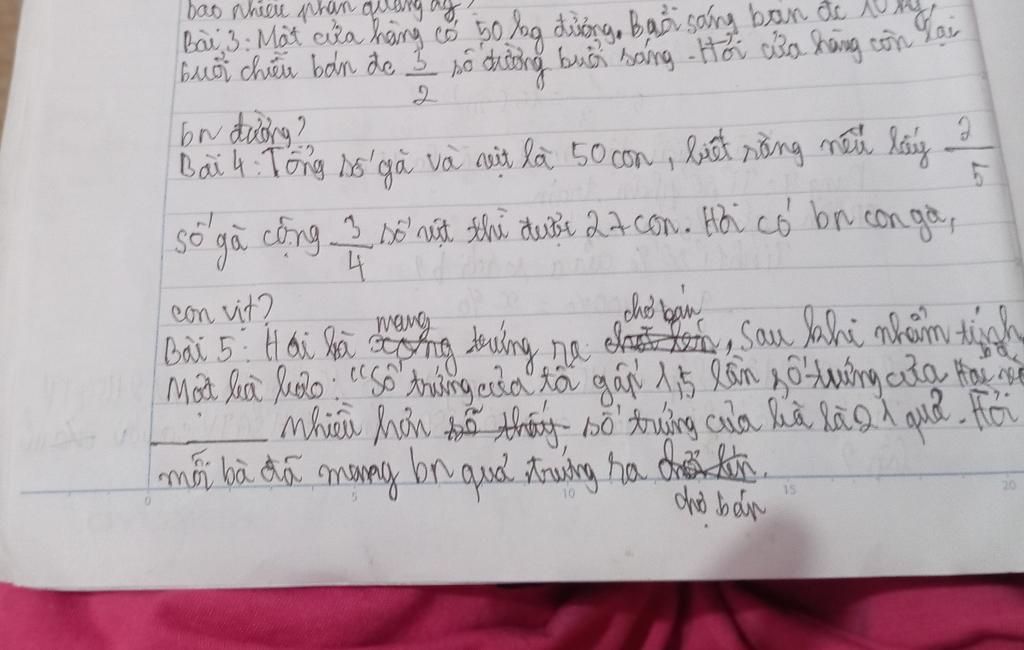 bao nhiêu phần quãng ấy?
Bài 3: Một cửa hàng có 50 kg đường. Buổi sáng bán đc 10 kg,
buổi chiều bán đc 3/2 số đường buổi sáng. Hỏi cửa hàng còn lại
bn đường?
Bài 4: Tổng số gà và vịt là 50 con, biết rằng nếu lấy 2/5
số gà cộng 3/4 số vịt thì được 27 con. Hỏi có bn con gà,
con vịt?
Bài 5: Hai bà mang trứng ra chợ bán, sau khi nhẩm tính
Một bà bảo: "Số trứng của tô gấp 1,5 lần số trứng của
nhiều hơn số trứng của bà là 21 quả. Hỏi
mỗi bà đã mang bn quả trứng ra chợ bán
0 5 10 15 20